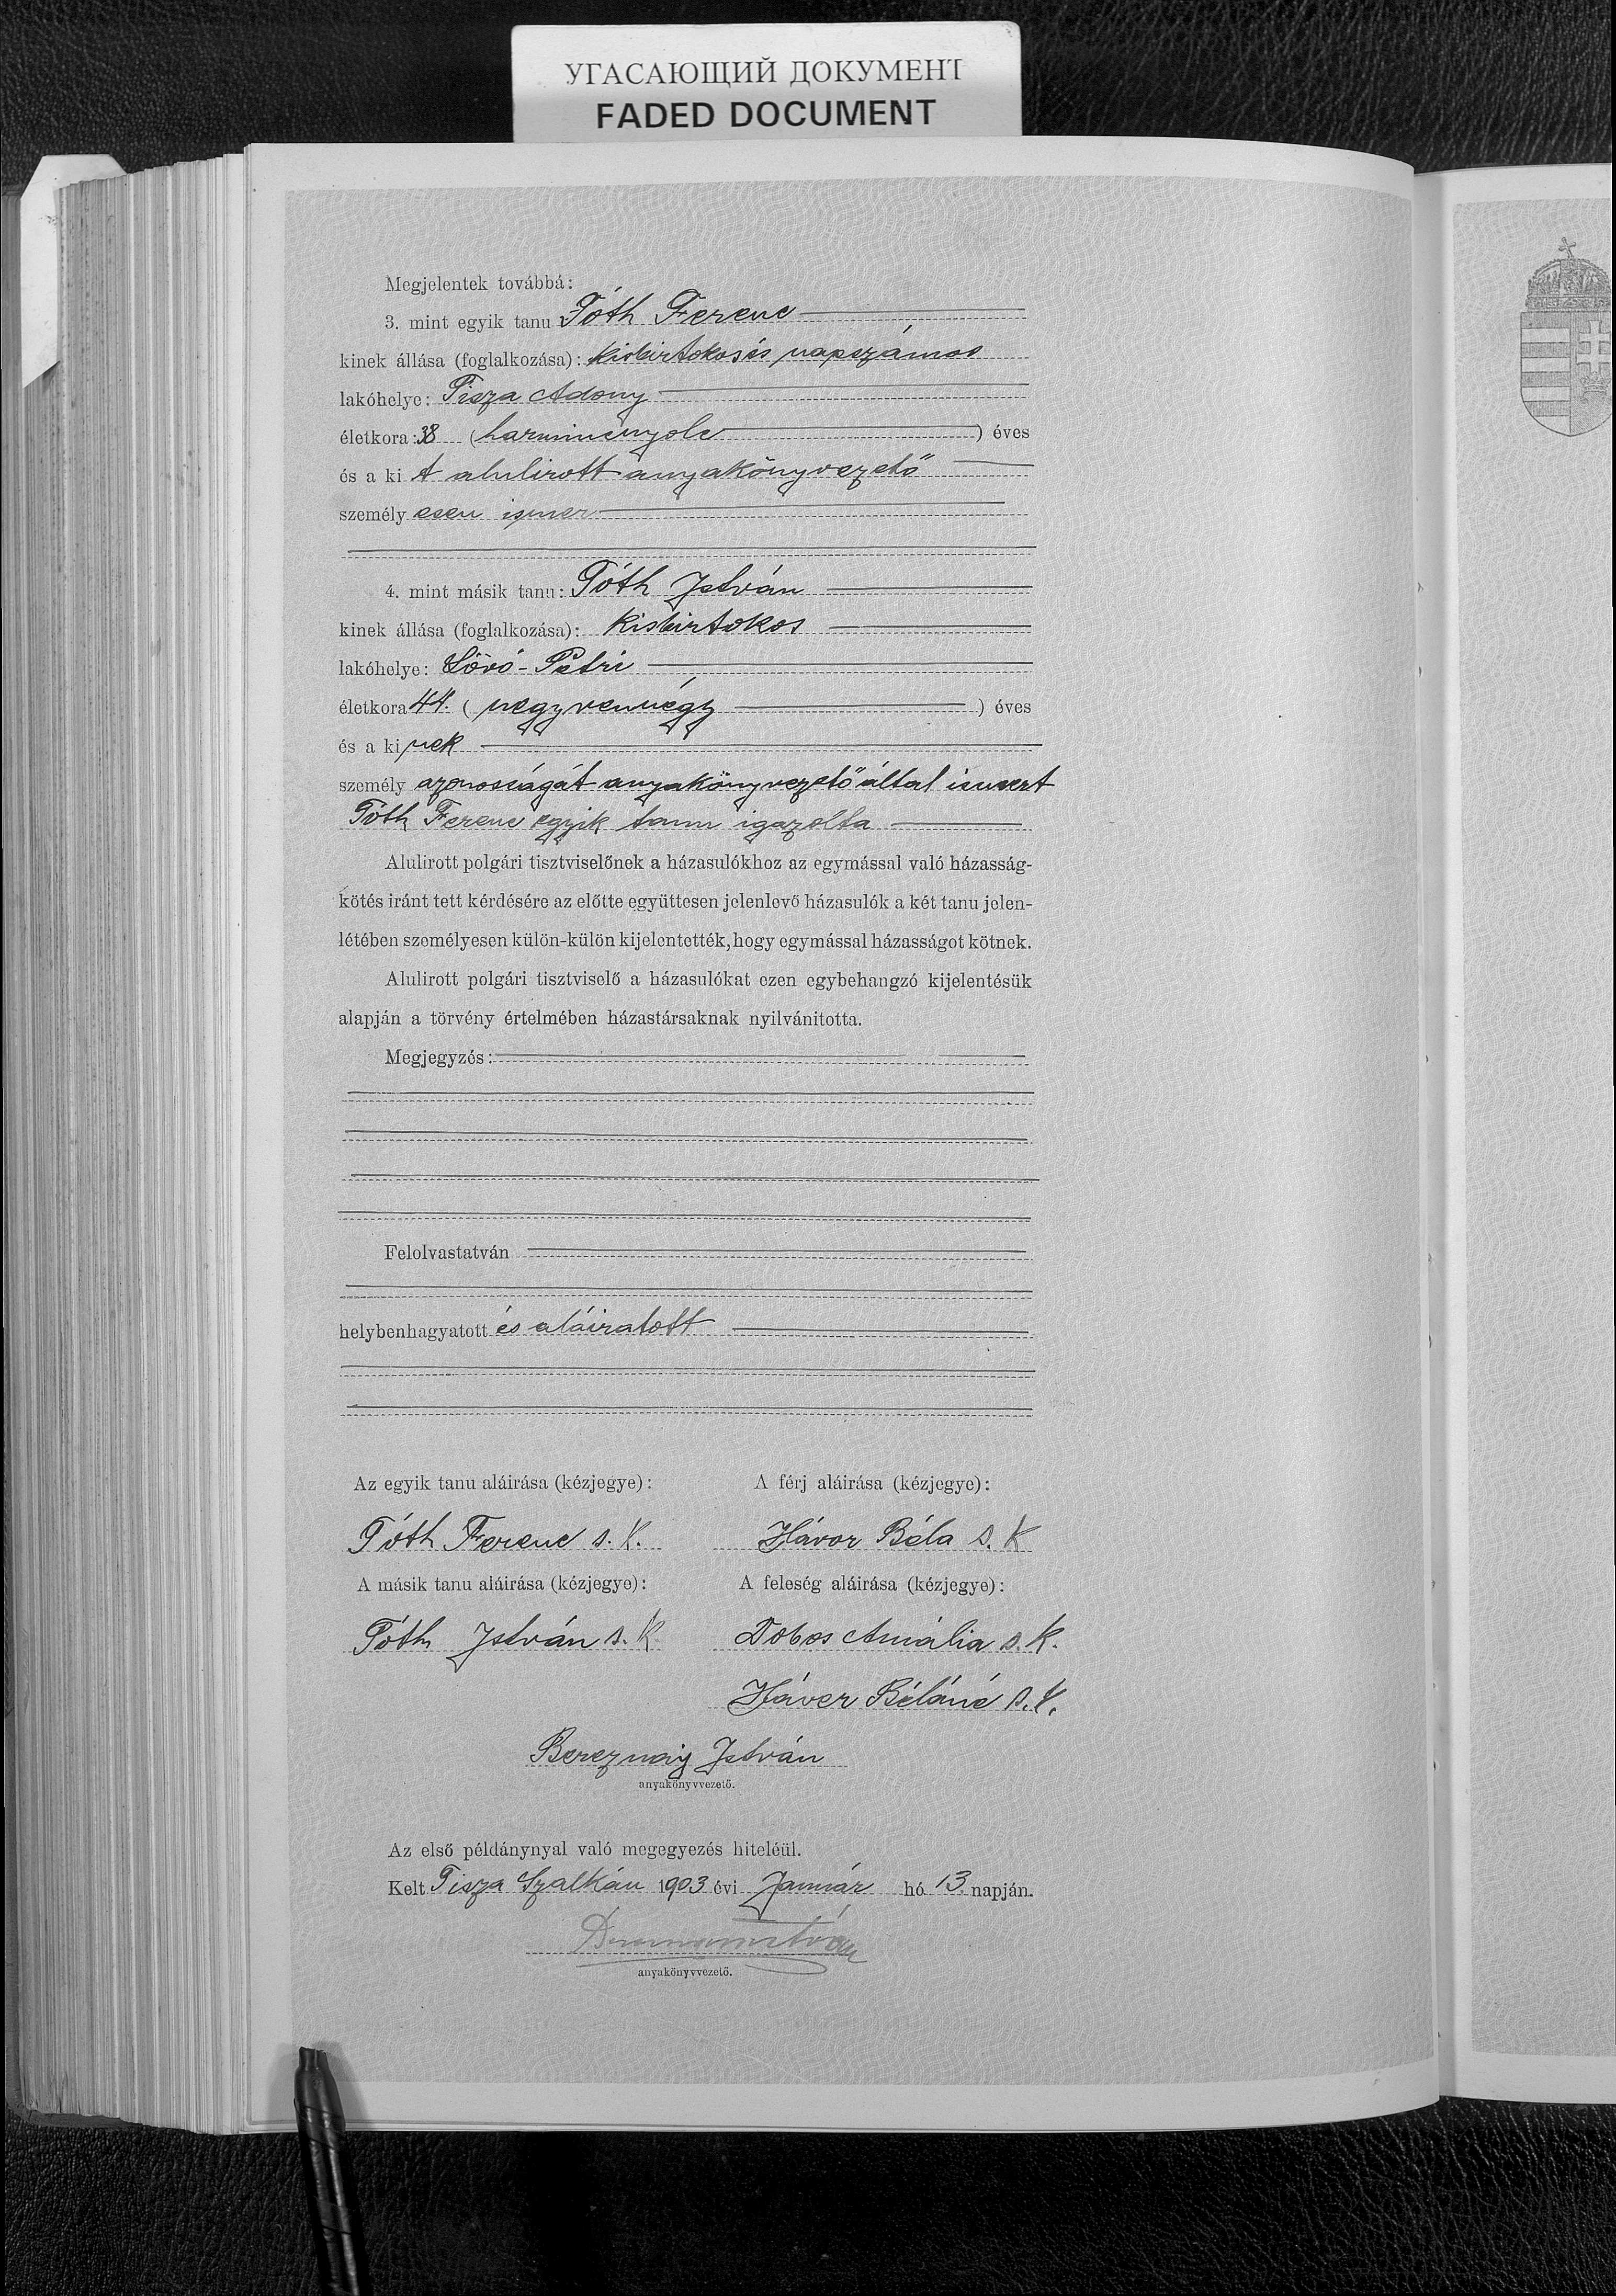 УГАСАЮЩИЙ ДОКУМЕНТ
FADED DOCUMENT
Megjelentek továbbá:
3. mint egyik tanu Tóth Ferenc
kinek állása (foglalkozása): kisbirtokos és napszámos
lakóhelye: Tisza Adony
életkora: 38 (harmincnyolc) éves
és a ki t alulirott anyakönyvvezető
személy esen ismer
4. mint másik tanu: Tóth István
kinek állása (foglalkozása): kisbirtokos
lakóhelye: Lövő-Petri
életkora 44. (negyvennégy) éves
és a ki nek
személy azonosságát anyakönyvvezető által ismert
Tóth Ferenc egyik tanu igazolta
Alulirott polgári tisztviselőnek a házasulókhoz az egymással való házasság-
kötés iránt tett kérdésére az előtte együttesen jelenlevő házasulók a két tanu jelen-
létében személyesen külön-külön kijelentették, hogy egymással házasságot kötnek.
Alulirott polgári tisztviselő a házasulókat ezen egybehangzó kijelentésük
alapján a törvény értelmében házastársaknak nyilvánitotta.
Megjegyzés:
Felolvastatván
helybenhagyatott és aláiratott
Az egyik tanu aláirása (kézjegye): A férj aláirása (kézjegye):
Tóth Ferenc s. k. Hávor Béla s. k
A másik tanu aláirása (kézjegye): A feleség aláirása (kézjegye):
Tóth István s. k. Dobos Amália s. k.
Háver Béláné s. k.
Bereznay István
anyakönyvvezető.
Az első példánynyal való megegyezés hiteléül.
Kelt Tisza Szalkán 1903 évi Január hó 13. napján.
anyakönyvvezető.